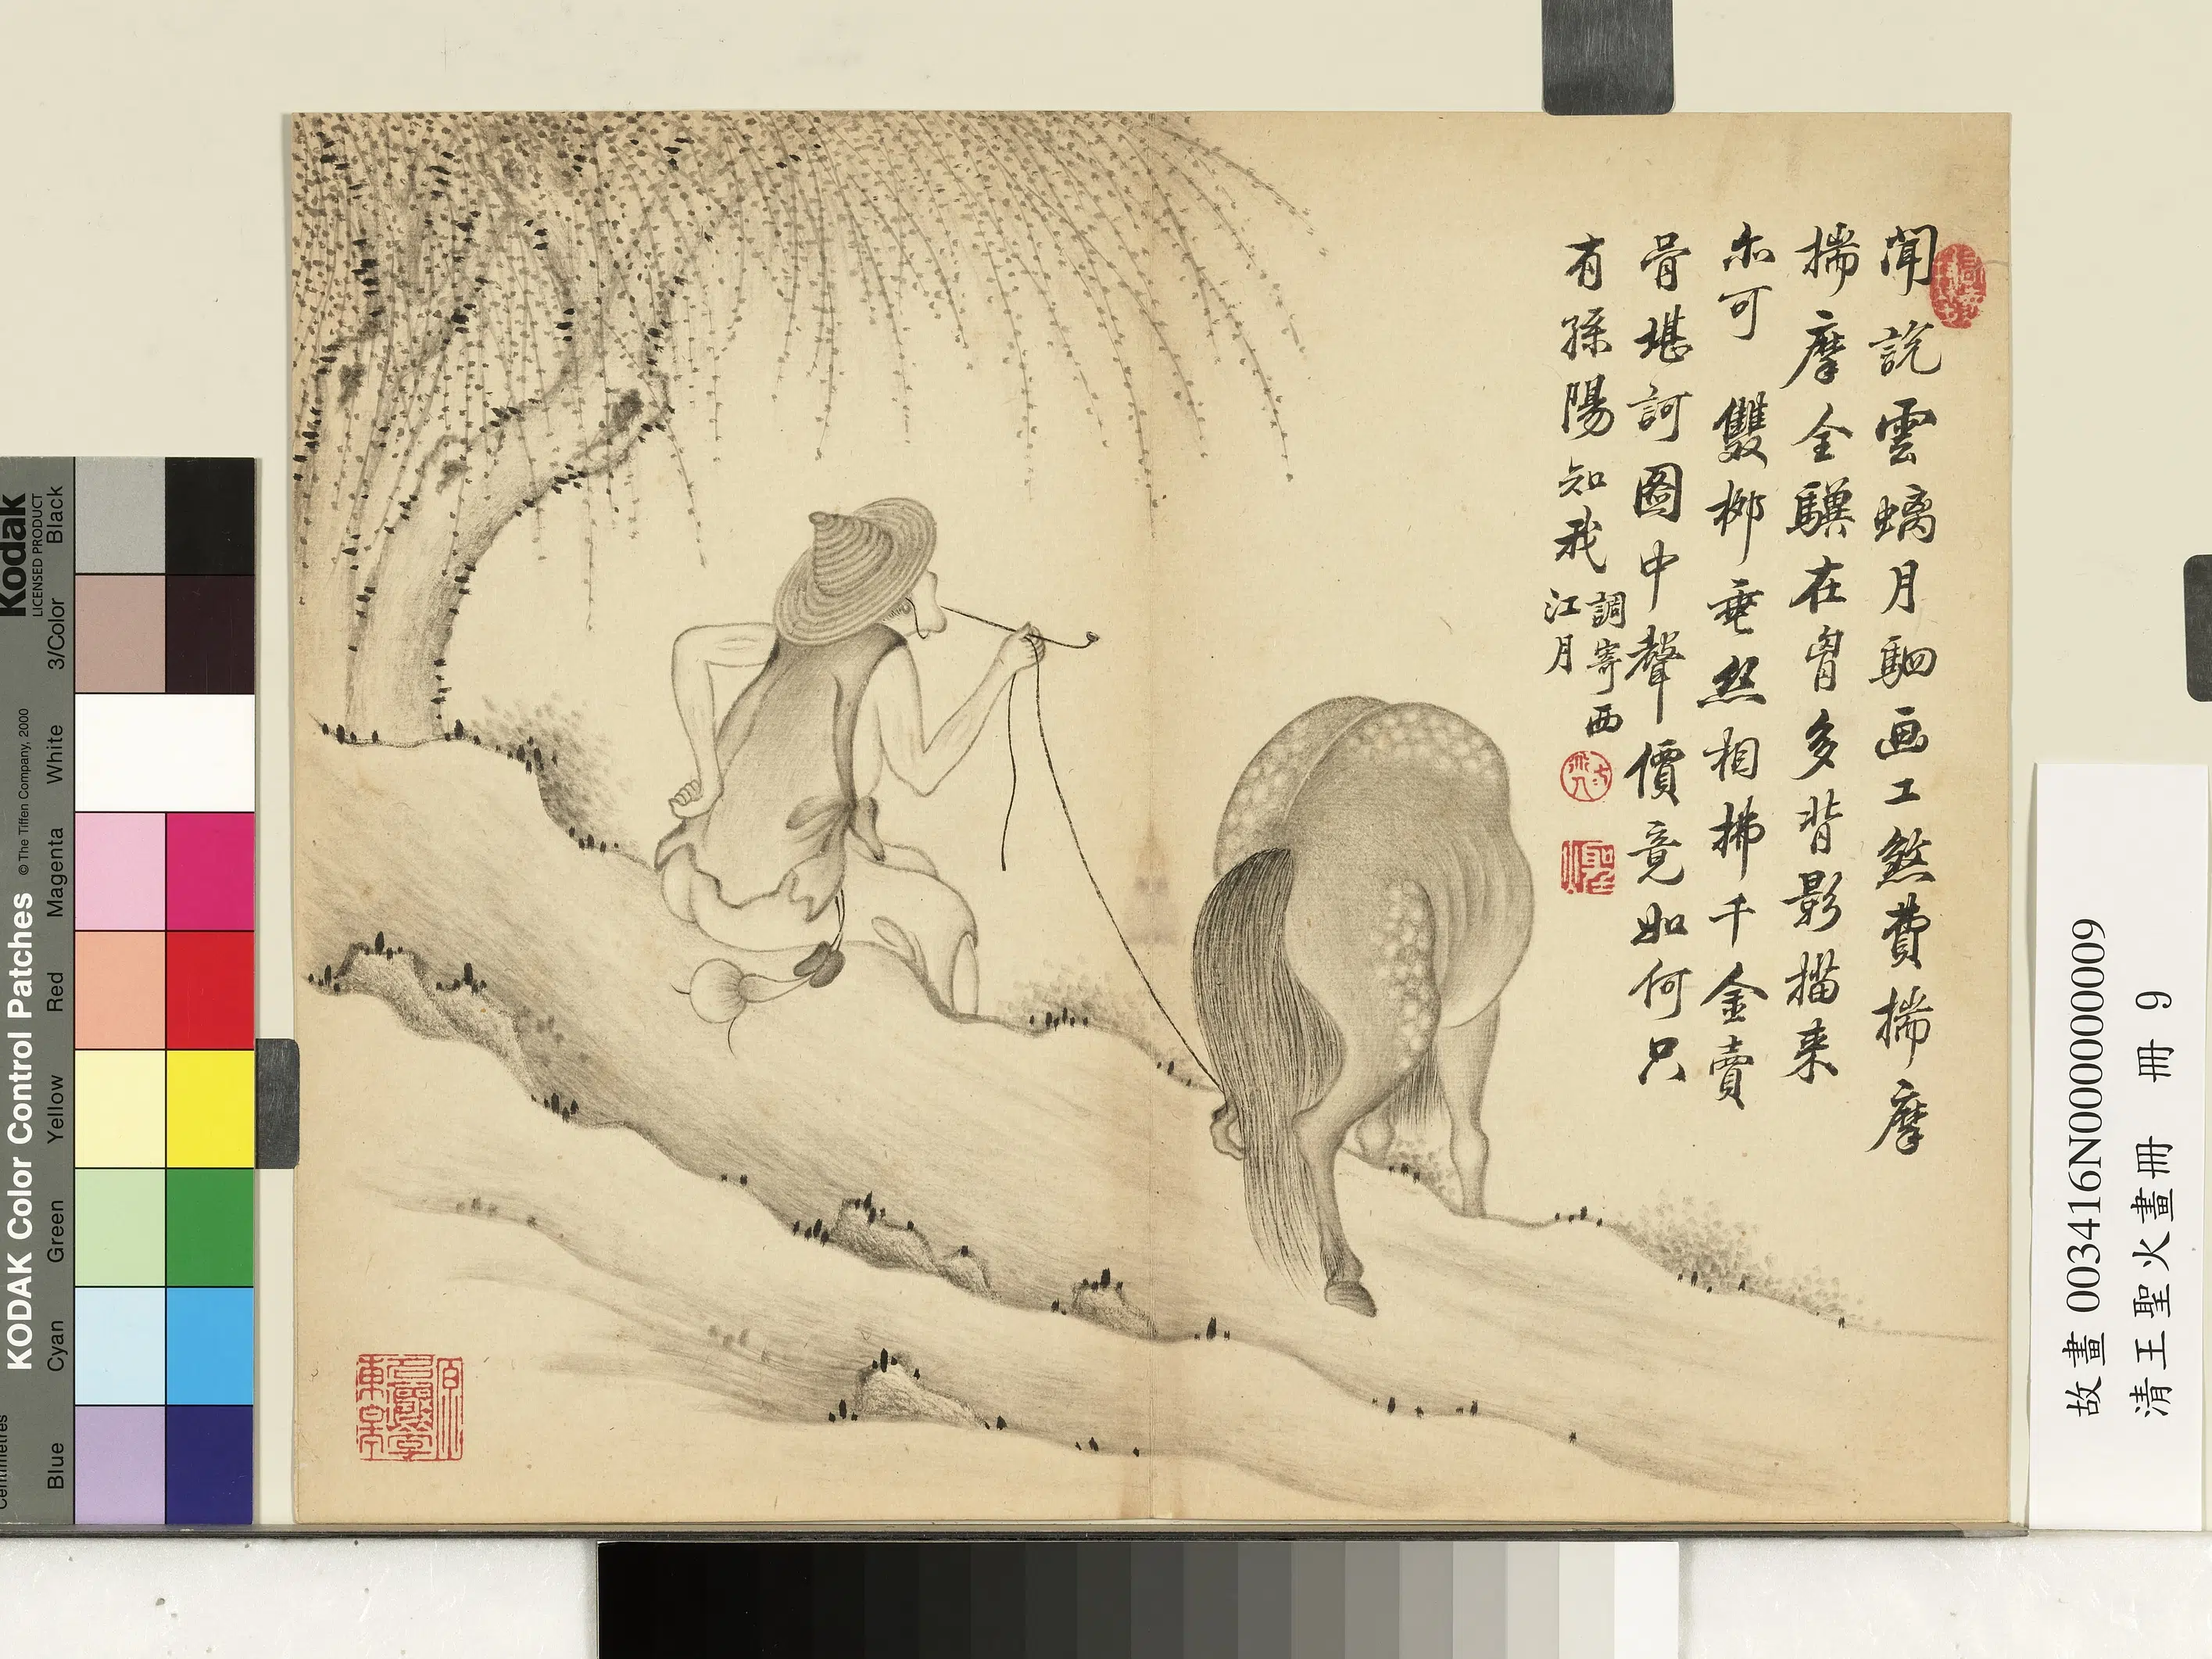 聞說雲螭月駟画工煞費揣摩
揣摩全驥在胷多背影描来
亦可雙柳垂絲相拂千金賣
骨堪訶图中聲價竟如何只
有孫陽知我
調寄西
江月
故畫 003416N000000009
清王聖火畫冊 冊 9
Kodak
LICENSED PRODUCT
KODAK Color Control Patches
© The Tiffen Company, 2000
Centimetres
Blue
Cyan
Green
Yellow
Red
Magenta
White
3/Color
Black